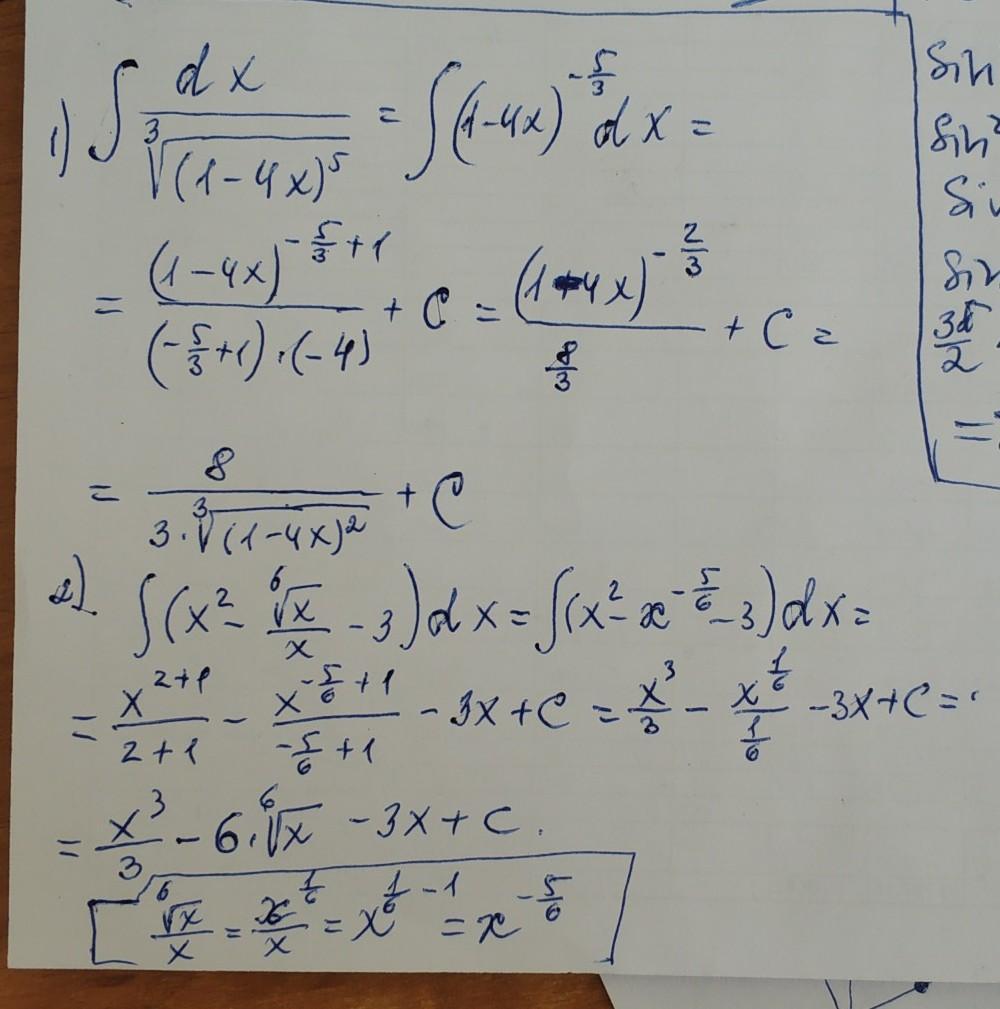 1) ∫ dx / ∛((1-4x)^5) = ∫(1-4x)^(-5/3) dx =
= (1-4x)^(-5/3+1) / ((-5/3+1)·(-4)) + C = (1-4x)^(-2/3) / (8/3) + C =
= 8 / (3·∛((1-4x)^2)) + C
2) ∫(x^2 - ⁶√x/x - 3)dx = ∫(x^2 - x^(-5/6) - 3)dx =
= x^(2+1)/(2+1) - x^(-5/6+1)/(-5/6+1) - 3x + C = x^3/3 - x^(1/6)/(1/6) - 3x + C =
= x^3/3 - 6·⁶√x - 3x + C.
⁶√x/x = x^(1/6)/x = x^(1/6-1) = x^(-5/6)
sin
sin²
sin